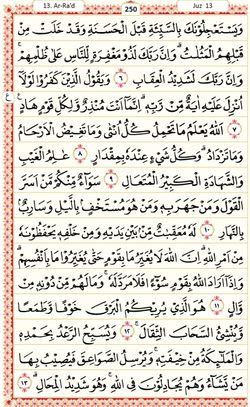 13. Ar-Ra'd 250 Juz 13
وَيَسْتَعْجِلُونَكَ بِالسَّيِّئَةِ قَبْلَ الْحَسَنَةِ وَقَدْ خَلَتْ مِنْ
قَبْلِهِمُ الْمَثُلَاتُ ۗ وَإِنَّ رَبَّكَ لَذُو مَغْفِرَةٍ لِلنَّاسِ عَلَىٰ ظُلْمِهِمْ ۖ
وَإِنَّ رَبَّكَ لَشَدِيدُ الْعِقَابِ ٦ وَيَقُولُ الَّذِينَ كَفَرُوا لَوْلَا
أُنْزِلَ عَلَيْهِ آيَةٌ مِنْ رَبِّهِ ۗ إِنَّمَا أَنْتَ مُنْذِرٌ وَلِكُلِّ قَوْمٍ هَادٍ
٧ اللَّهُ يَعْلَمُ مَا تَحْمِلُ كُلُّ أُنْثَىٰ وَمَا تَغِيضُ الْأَرْحَامُ
وَمَا تَزْدَادُ ۖ وَكُلُّ شَيْءٍ عِنْدَهُ بِمِقْدَارٍ ٨ عَالِمُ الْغَيْبِ
وَالشَّهَادَةِ الْكَبِيرُ الْمُتَعَالِ ٩ سَوَاءٌ مِنْكُمْ مَنْ أَسَرَّ
الْقَوْلَ وَمَنْ جَهَرَ بِهِ وَمَنْ هُوَ مُسْتَخْفٍ بِاللَّيْلِ وَسَارِبٌ
بِالنَّهَارِ ١٠ لَهُ مُعَقِّبَاتٌ مِنْ بَيْنِ يَدَيْهِ وَمِنْ خَلْفِهِ يَحْفَظُونَهُ
مِنْ أَمْرِ اللَّهِ ۗ إِنَّ اللَّهَ لَا يُغَيِّرُ مَا بِقَوْمٍ حَتَّىٰ يُغَيِّرُوا مَا بِأَنْفُسِهِمْ ۗ
وَإِذَا أَرَادَ اللَّهُ بِقَوْمٍ سُوءًا فَلَا مَرَدَّ لَهُ ۚ وَمَا لَهُمْ مِنْ دُونِهِ مِنْ
وَالٍ ١١ هُوَ الَّذِي يُرِيكُمُ الْبَرْقَ خَوْفًا وَطَمَعًا
وَيُنْشِئُ السَّحَابَ الثِّقَالَ ١٢ وَيُسَبِّحُ الرَّعْدُ بِحَمْدِهِ
وَالْمَلَائِكَةُ مِنْ خِيفَتِهِ وَيُرْسِلُ الصَّوَاعِقَ فَيُصِيبُ بِهَا
مَنْ يَشَاءُ وَهُمْ يُجَادِلُونَ فِي اللَّهِ وَهُوَ شَدِيدُ الْمِحَالِ ١٣